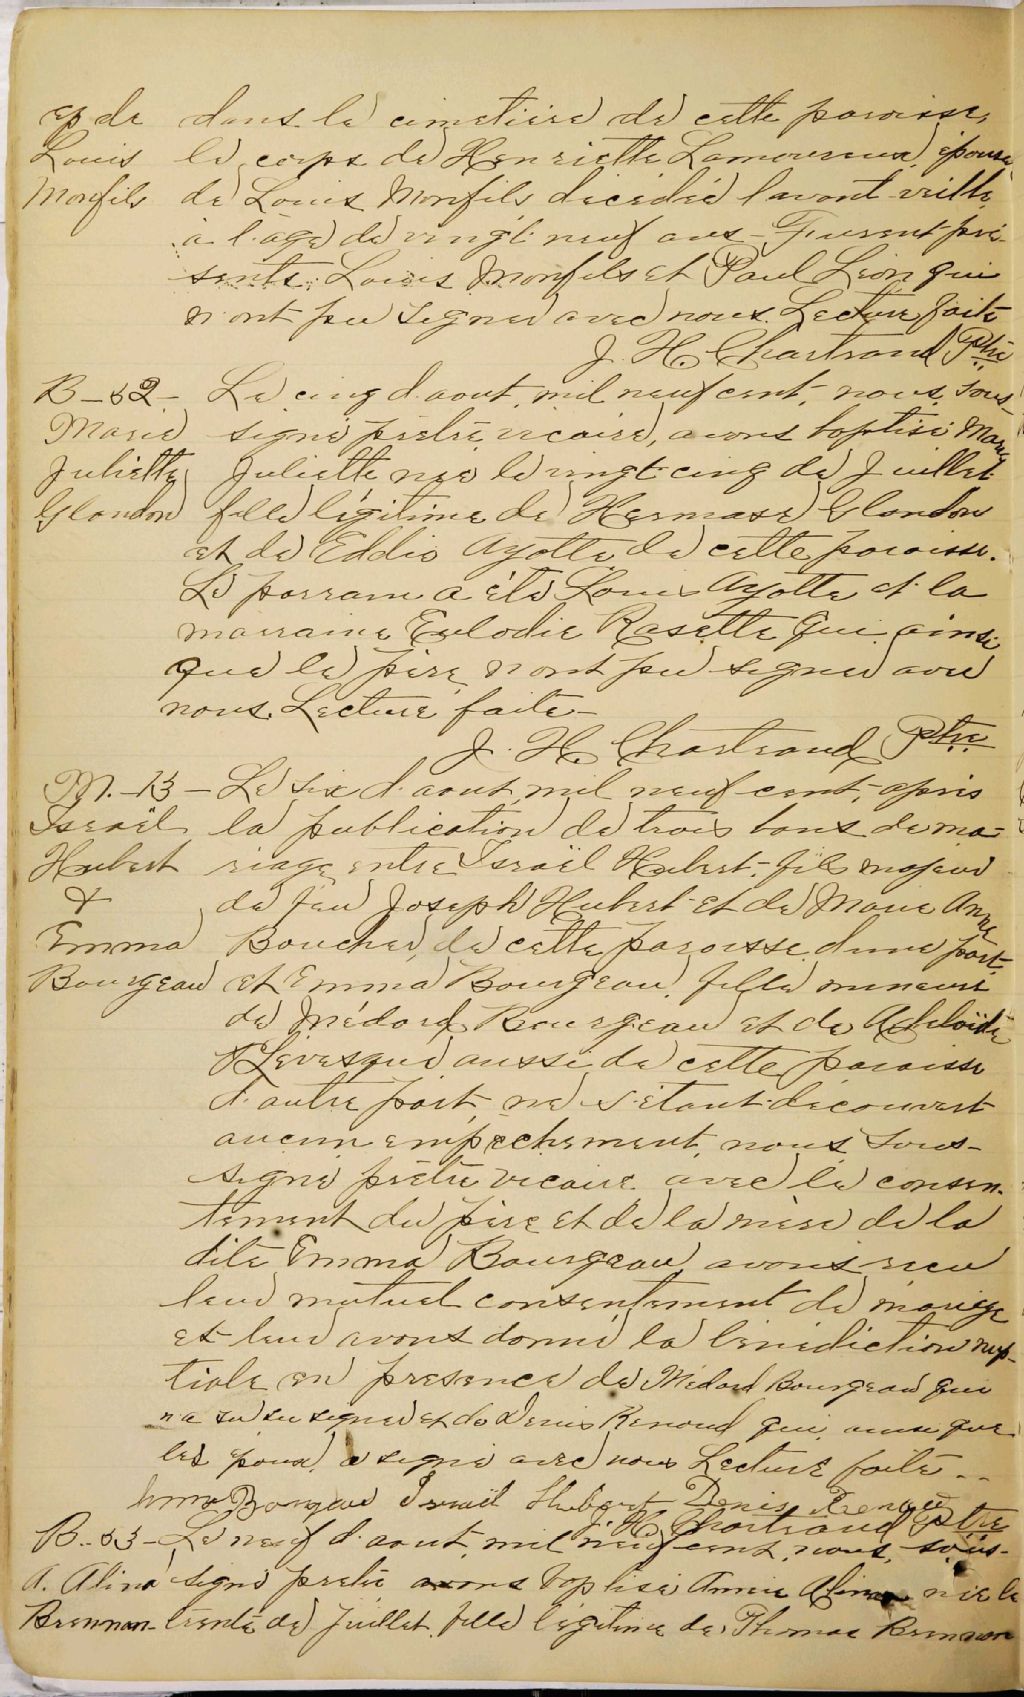 ép de dans le cimetière de cette paroisse,
Louis le corps de Henriette Lamoureux, épouse
Monfils de Louis Monfils décédée l'avant-veille
à l'âge de vingt-neuf ans - Furent pré-
sents: Louis Monfils et Paul Léon qui
n'ont pu signer avec nous. Lecture faite
J. H. Chartrand Ptre
B-52- Le cinq d'aout, mil neuf cent, nous, sous-
Marie signé prêtre vicaire, avons baptisé Marie
Juliette Juliette née le vingt-cinq de Juillet
Glandon fille légitime de Hermase Glandon
et de Eddio Ayotte de cette paroisse.
Le parrain a été Louis Ayotte et la
marraine Exlodie Rasette qui ainsi
que le père n'ont pu signer avec
nous. Lecture faite -
J. H. Chartrand Ptre
M.-13- Le six d'aout, mil neuf cent, après
Israël la publication de trois bans de ma-
Hubert riage entre Israël Hubert, fils majeur
& de feu Joseph Hubert et de Marie Anne
Emma Boucher, de cette paroisse, d'une part,
Bourgeau et Emma Bourgeau, fille mineure
de Médard Bourgeau et de Adelaïde
Lévesque aussi de cette paroisse
d'autre part, ne s'étant découvert
aucun empêchement, nous sous-
signé prêtre vicaire avec le consen-
tement du père et de la mère de la
dite Emma Bourgeau, avons reçu
leur mutuel consentement de mariage
et leur avons donné la bénédiction nup-
tiale en présence de Médard Bourgeau qui
n'a su signer et de Denis Renaud qui, ainsi que
les époux, a signé avec nous Lecture faite --
Emma Bourgeau Israël Hubert Denis Renaud
J. H. Chartrand Ptre
B.-53- Le neuf d'aout, mil neuf cent, nous, sous-
A. Alina signé prêtre avons baptisé Annie Alina née le
Brennan trente de Juillet, fille légitime de Thomas Brennan